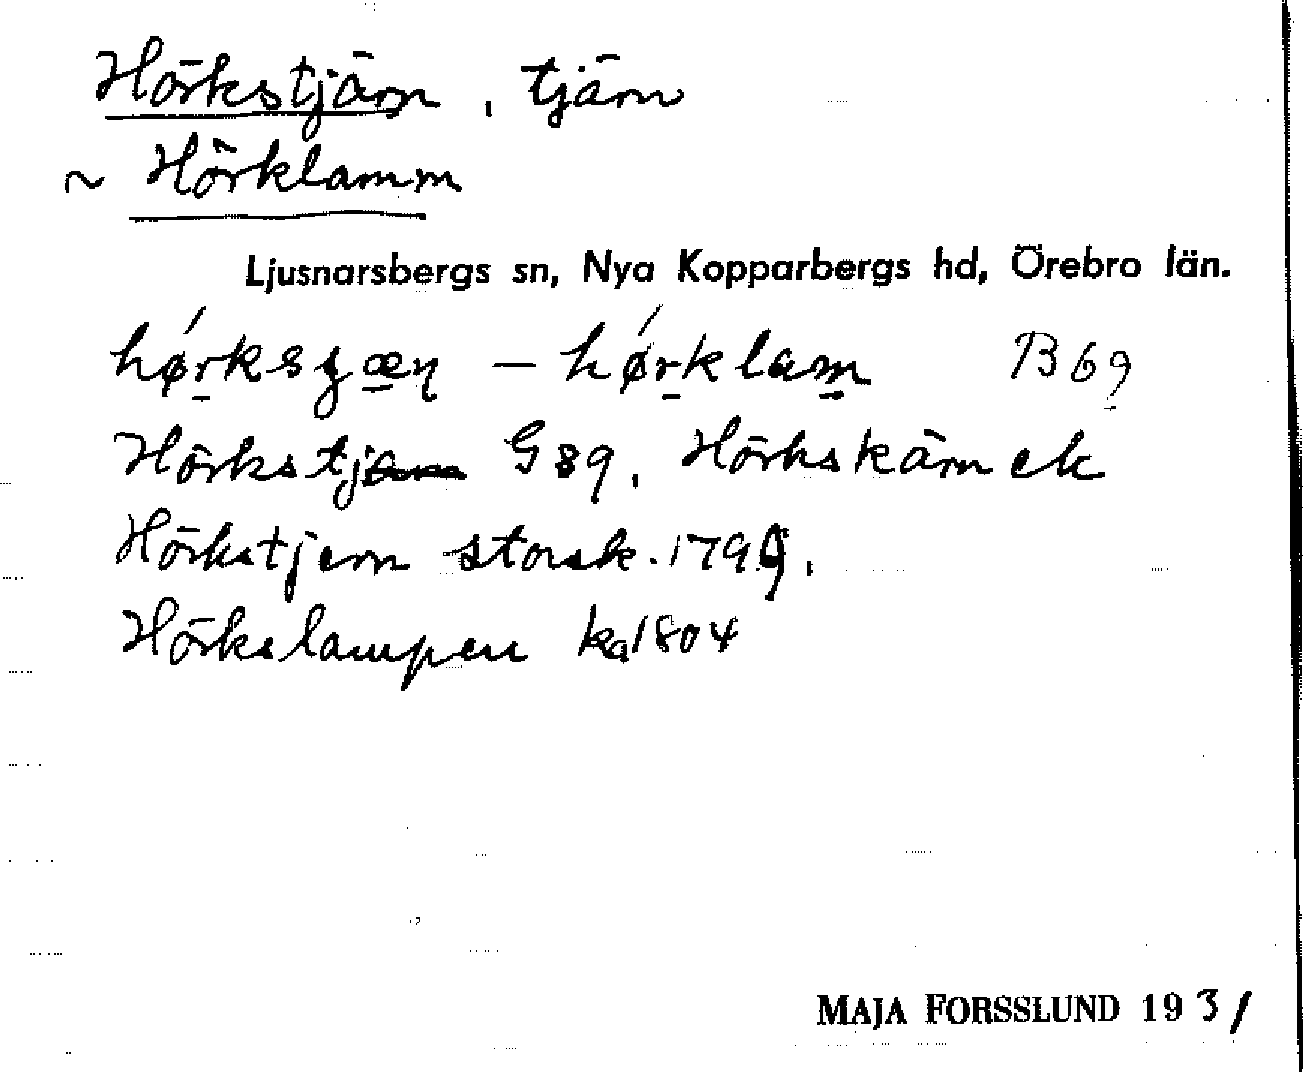 Hörkstjärn, tjärn
~ Hörklamm
Ljusnarsbergs sn, Nya Kopparbergs hd, Örebro län.
– B69
Hörkstjärn G89. Hörkskärn ek
Hörkstjern storsk. 1799.
Hörkslampen ka 1804
MAJA FORSSLUND 1931